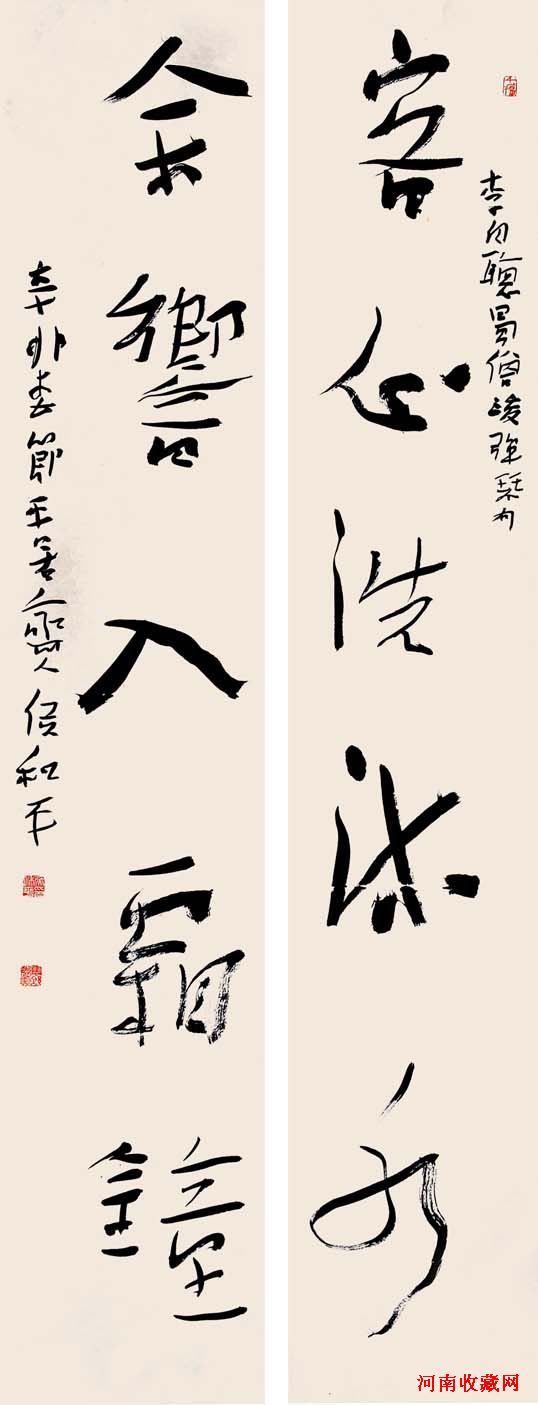 李白聽蜀僧浚弹琴句
客心洗流水
余響入霜鐘
辛卯春節 侯和平
河南收藏网